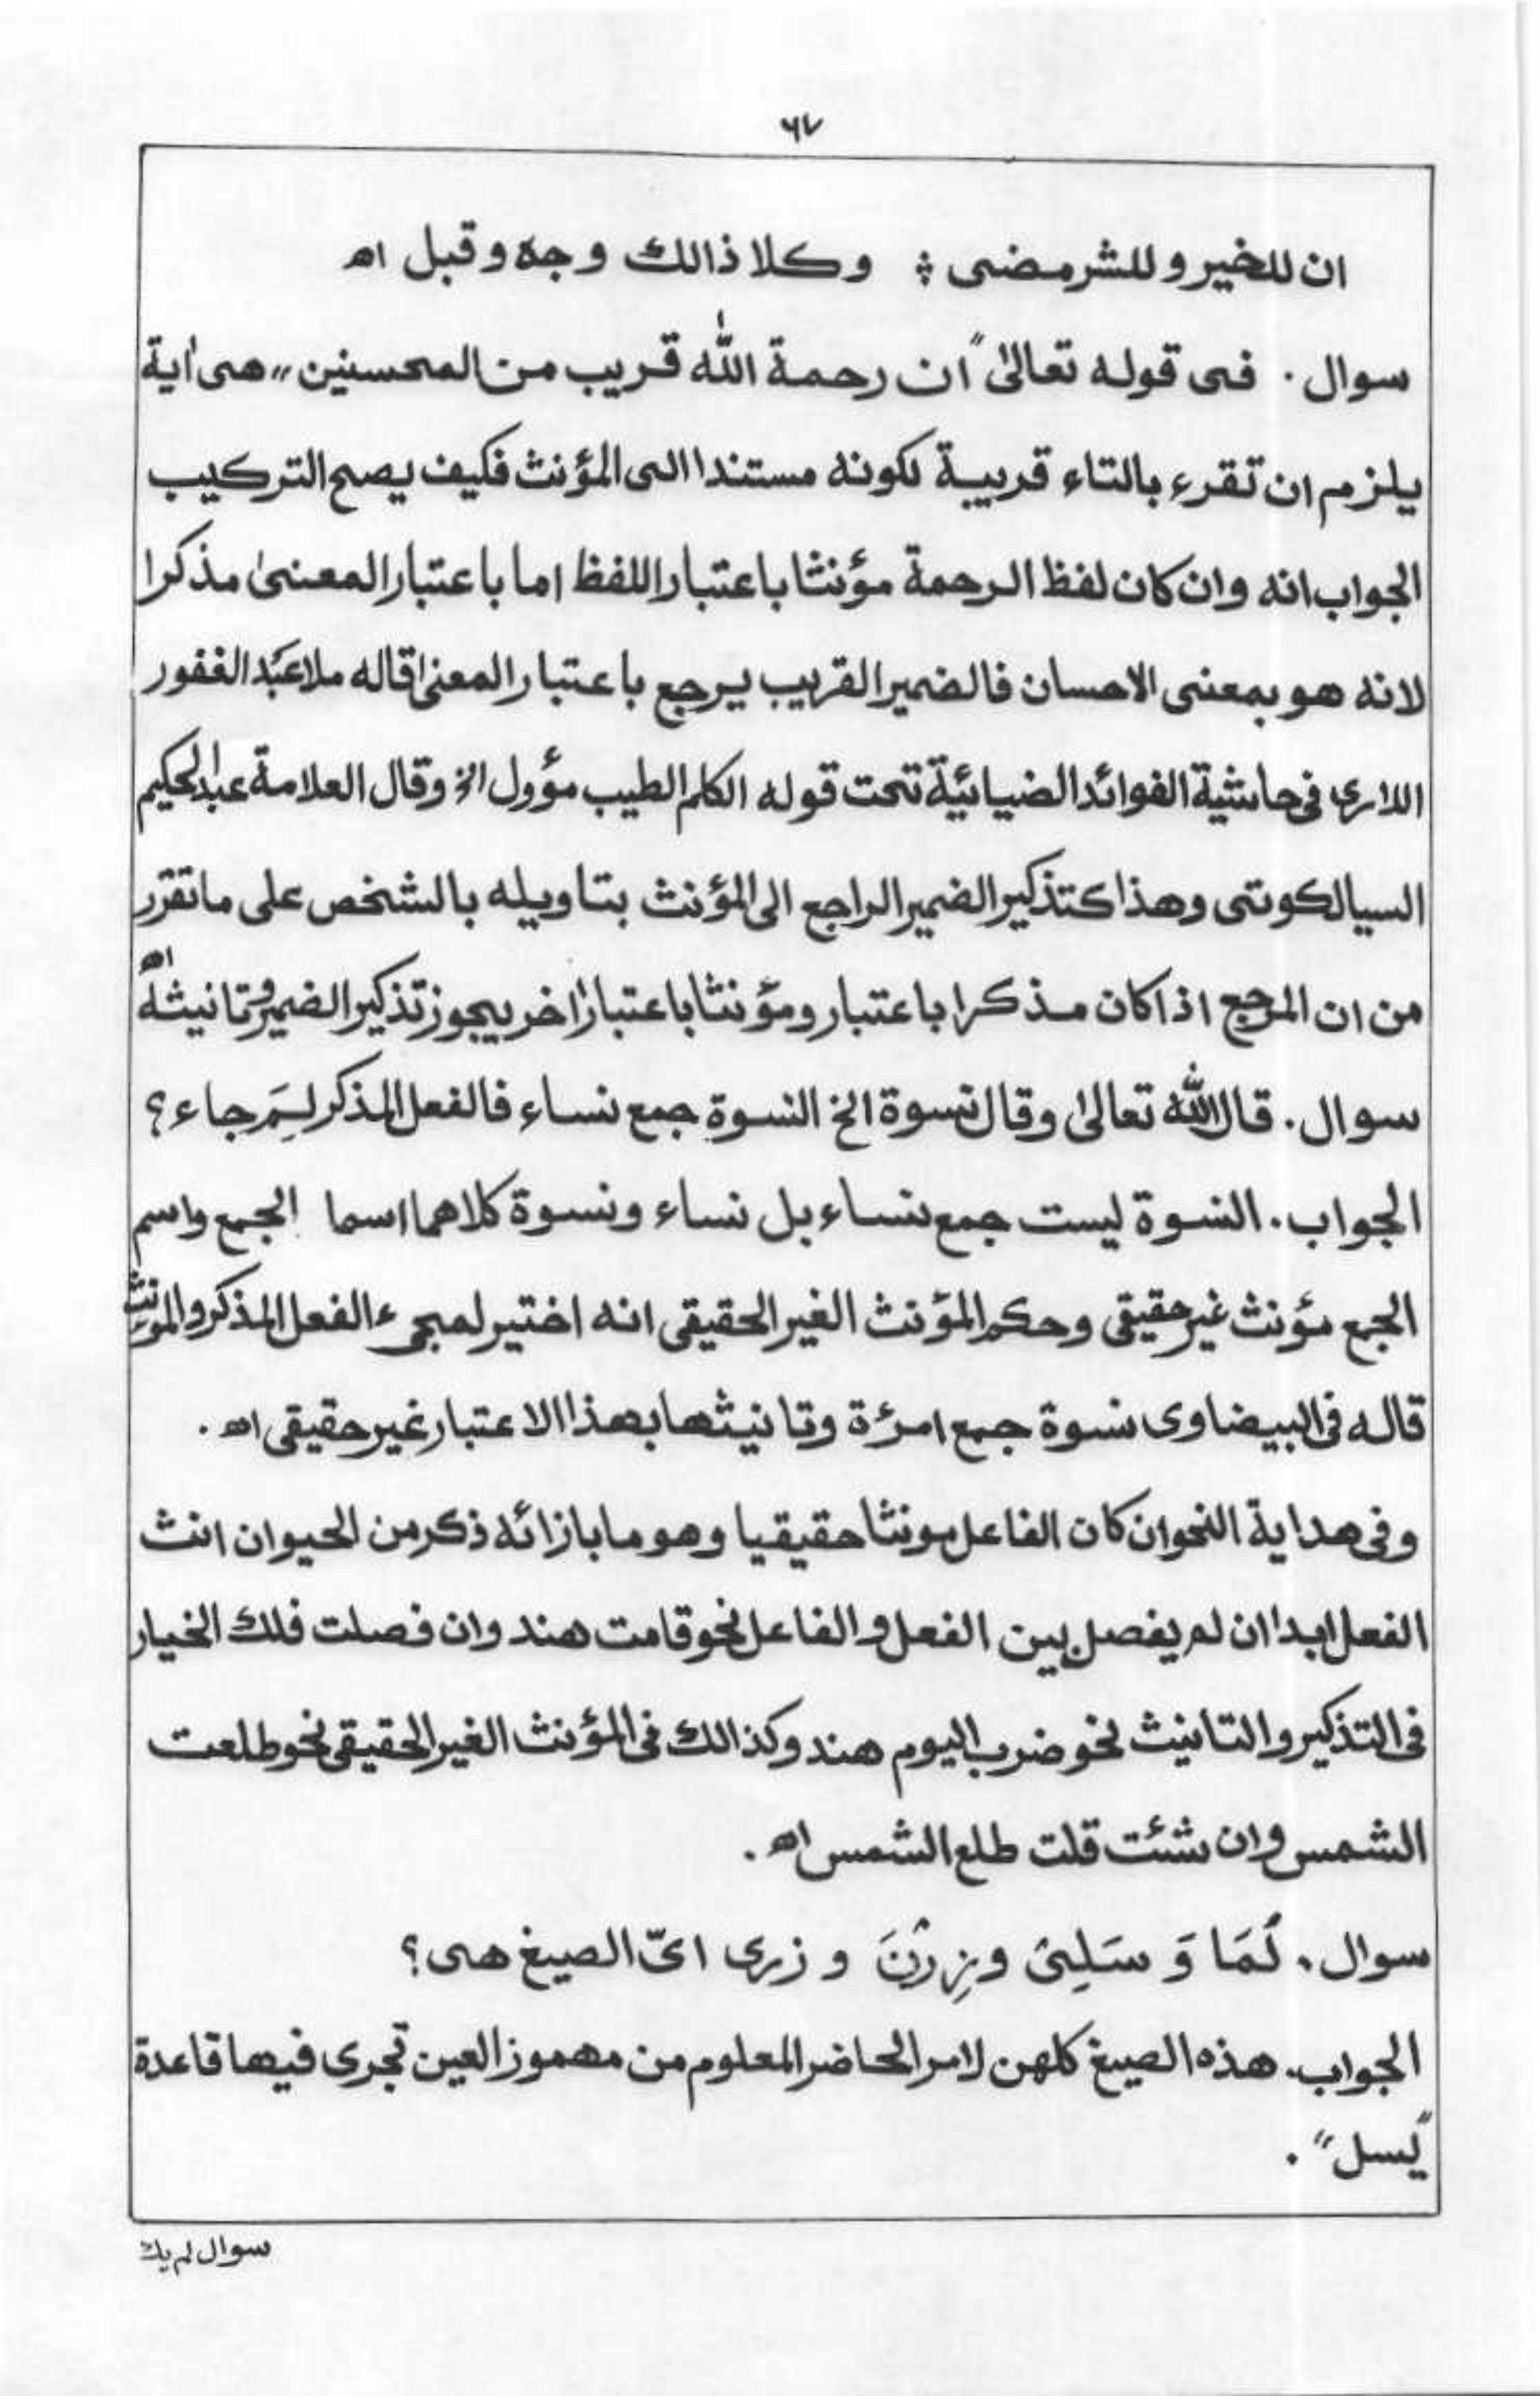 ٦٧
ان للخير وللشر مضى ؛ وكلا ذالك وجه وقبل اھ
سوال . فى قوله تعالىٰ "ان رحمة الله قريب من المحسنين" هى اٰية
يلزم ان تقرء بالتاء قريبة لكونه مستندا الى المؤنث فكيف يصح التركيب
الجواب انه وان كان لفظ الرحمة مؤنثا باعتبار اللفظ اما باعتبار المعنىٰ مذكرا
لانه هو بمعنى الاحسان فالضمير القريب يرجع باعتبار المعنىٰ قاله ملا عبد الغفور
اللارى فى حاشية الفوائد الضيائية تحت قوله الكلم الطيب مؤول الخ وقال العلامة عبد الحكيم
السيالكوتى وهذا كتذكير الضمير الراجع الى المؤنث بتاويله بالشخص على ما تقرر
من ان المرجع اذا كان مذكرا باعتبار ومؤنثا باعتبار اٰخر يجوز تذكير الضمير وتانيثه اھ
سوال . قال الله تعالىٰ وقال نسوة الخ النسوة جمع نساء فالفعل المذكر لِمَ جاء ؟
الجواب . النسوة ليست جمع نساء بل نساء ونسوة كلاهما اسما الجمع واسم
الجمع مؤنث غير حقيقى وحكم المؤنث الغير الحقيقى انه اختير لمجىء الفعل المذكر والمؤنث
قاله فى البيضاوى نسوة جمع امرءة وتانيثها بهذا الاعتبار غير حقيقى اھ .
وفى هداية النحو ان كان الفاعل مونثا حقيقيا وهو ما بازائه ذكر من الحيوان انث
الفعل ابدا ان لم يفصل بين الفعل والفاعل نحو قامت هند وان فصلت فلك الخيار
فى التذكير والتانيث نحو ضرب اليوم هند وكذالك فى المؤنث الغير الحقيقى نحو طلعت
الشمس وان شئت قلت طلع الشمس اھ .
سوال . لُمَا وَ سَلِىْ وزِرْنَ و زرى اىّ الصيغ هى ؟
الجواب . هذه الصيغ كلهن لامر الحاضر المعلوم من مهموز العين تجرى فيها قاعدة
"يسل" .
سوال لم يك